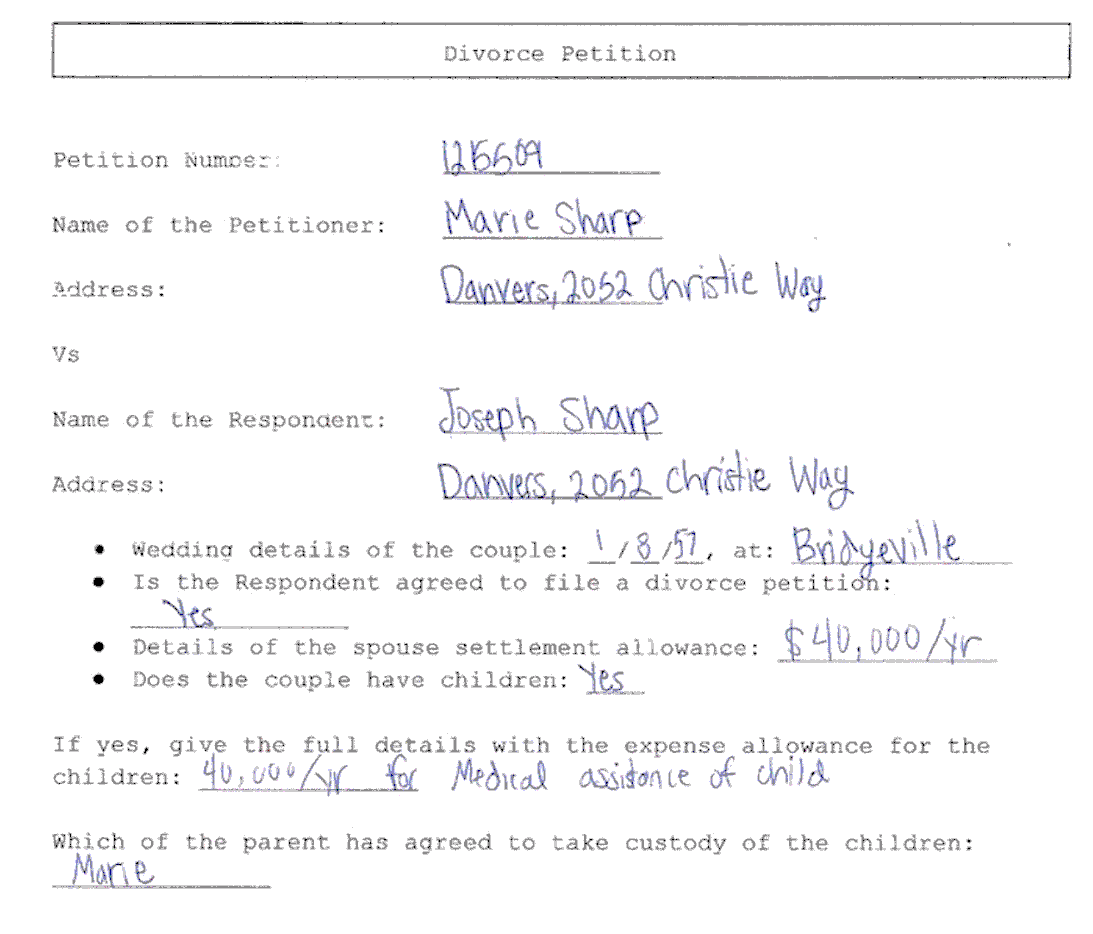 Divorce Petition
Petition Number: 125509
Name of the Petitioner: Marie Sharp
Address: Danvers, 2052 Christie Way
Vs
Name of the Respondent: Joseph Sharp
Address: Danvers, 2052 Christie Way
• Wedding details of the couple: 1/8/57, at: Bridyeville
• Is the Respondent agreed to file a divorce petition:
Yes
• Details of the spouse settlement allowance: $40,000/yr
• Does the couple have children: Yes
If yes, give the full details with the expense allowance for the
children: 40,000/yr for Medical assistance of child
Which of the parent has agreed to take custody of the children:
Marie